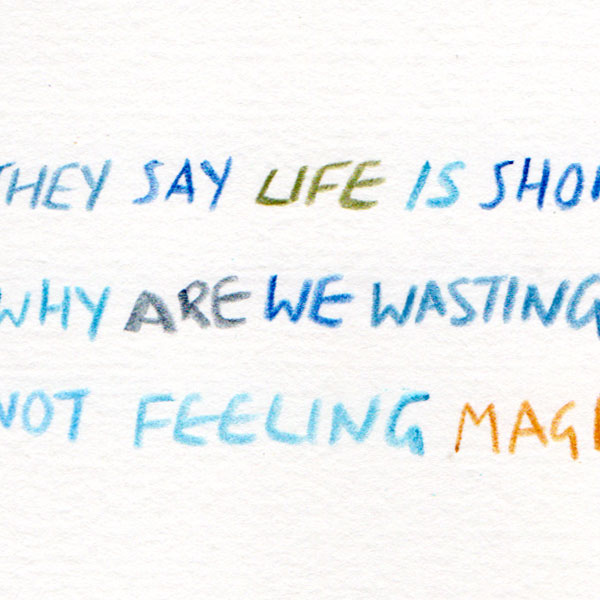 THEY SAY LIFE IS SHOR
WHY ARE WE WASTING
NOT FEELING MAGI